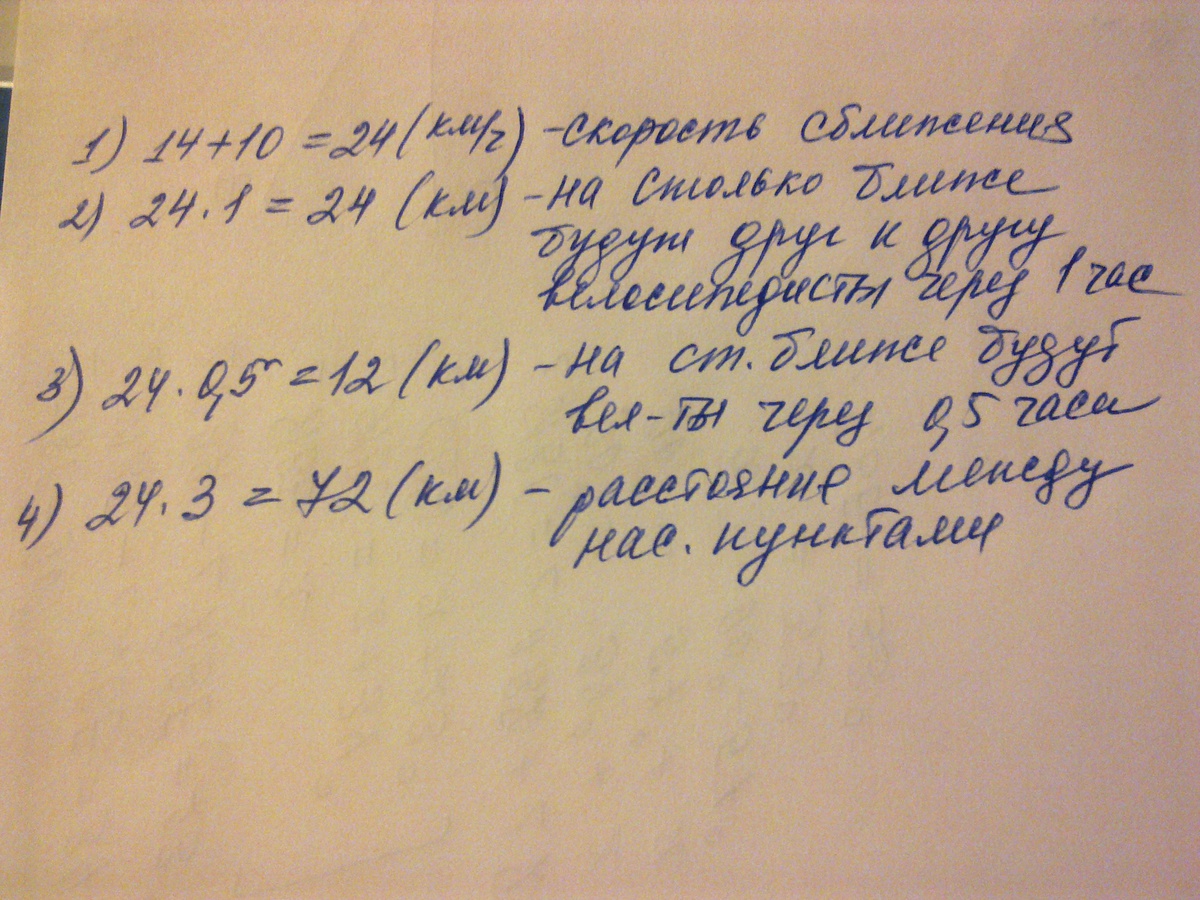 1) 14+10 = 24 (км/ч) - скорость сближения
2) 24 . 1 = 24 (км) - на столько ближе
будут друг к другу
велосипедисты через 1 час
3) 24 . 0,5 = 12 (км) - на ст. ближе будут
вел-ты через 0,5 часа
4) 24 . 3 = 72 (км) - расстояние между
нас. пунктами